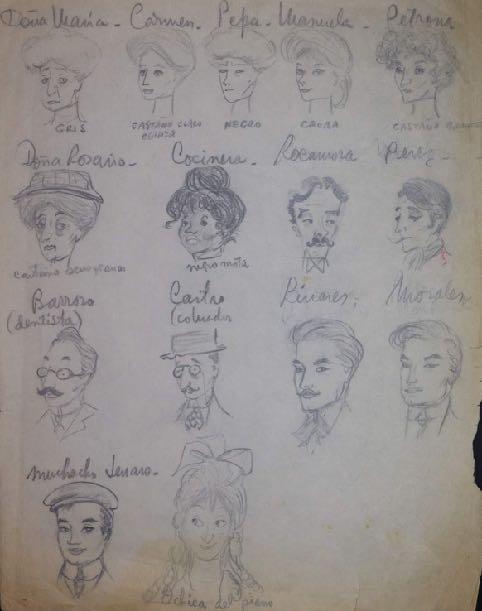 Doña María - Carmen - Pepa - Manuela - Petrona
GRIS
CASTAÑO CLARO
NEGRO
CASTAÑO
Doña Rosario - Cocinera - Rocamora Perez -
castaño
negro mota
Barroso
(dentista)
Castro
(cobrador
Linares. Morales
muchacho
chica del piano